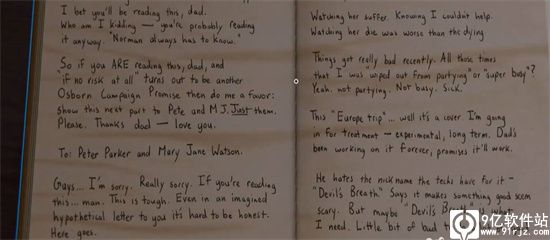 I bet you'll be reading this, dad.
Who am I kidding — you're probably reading
it anyway. "Norman always has to know."
So if you ARE reading this, dad, and
"if no risk at all" turns out to be another
Osborn Campaign Promise then do me a favor:
show this next part to Pete and MJ. Just them.
Please. Thanks dad — love you.
To: Peter Parker and Mary Jane Watson.
Guys... I'm sorry. Really sorry. If you're reading
this... man. This is tough. Even in an imagined
hypothetical letter to you it's hard to be honest.
Here goes.
Watching her suffer. Knowing I couldn't help.
Watching her die was worse than the dying
Things got really bad recently. All those times
that I was wiped out from partying" or "super busy"?
Yeah. not partying. Not busy. Sick.
This "Europe trip"... well it's a cover. I'm going
in for treatment — experimental, long term. Dad's
been working on it forever, promises it'll work.
He hates the nickname the techs have for it —
"Devil's Breath." Says it makes something good seem
scary. But maybe "Devil's Breath" is what
I need. Little bit of bad t
9亿软件站
www.91rjz.com